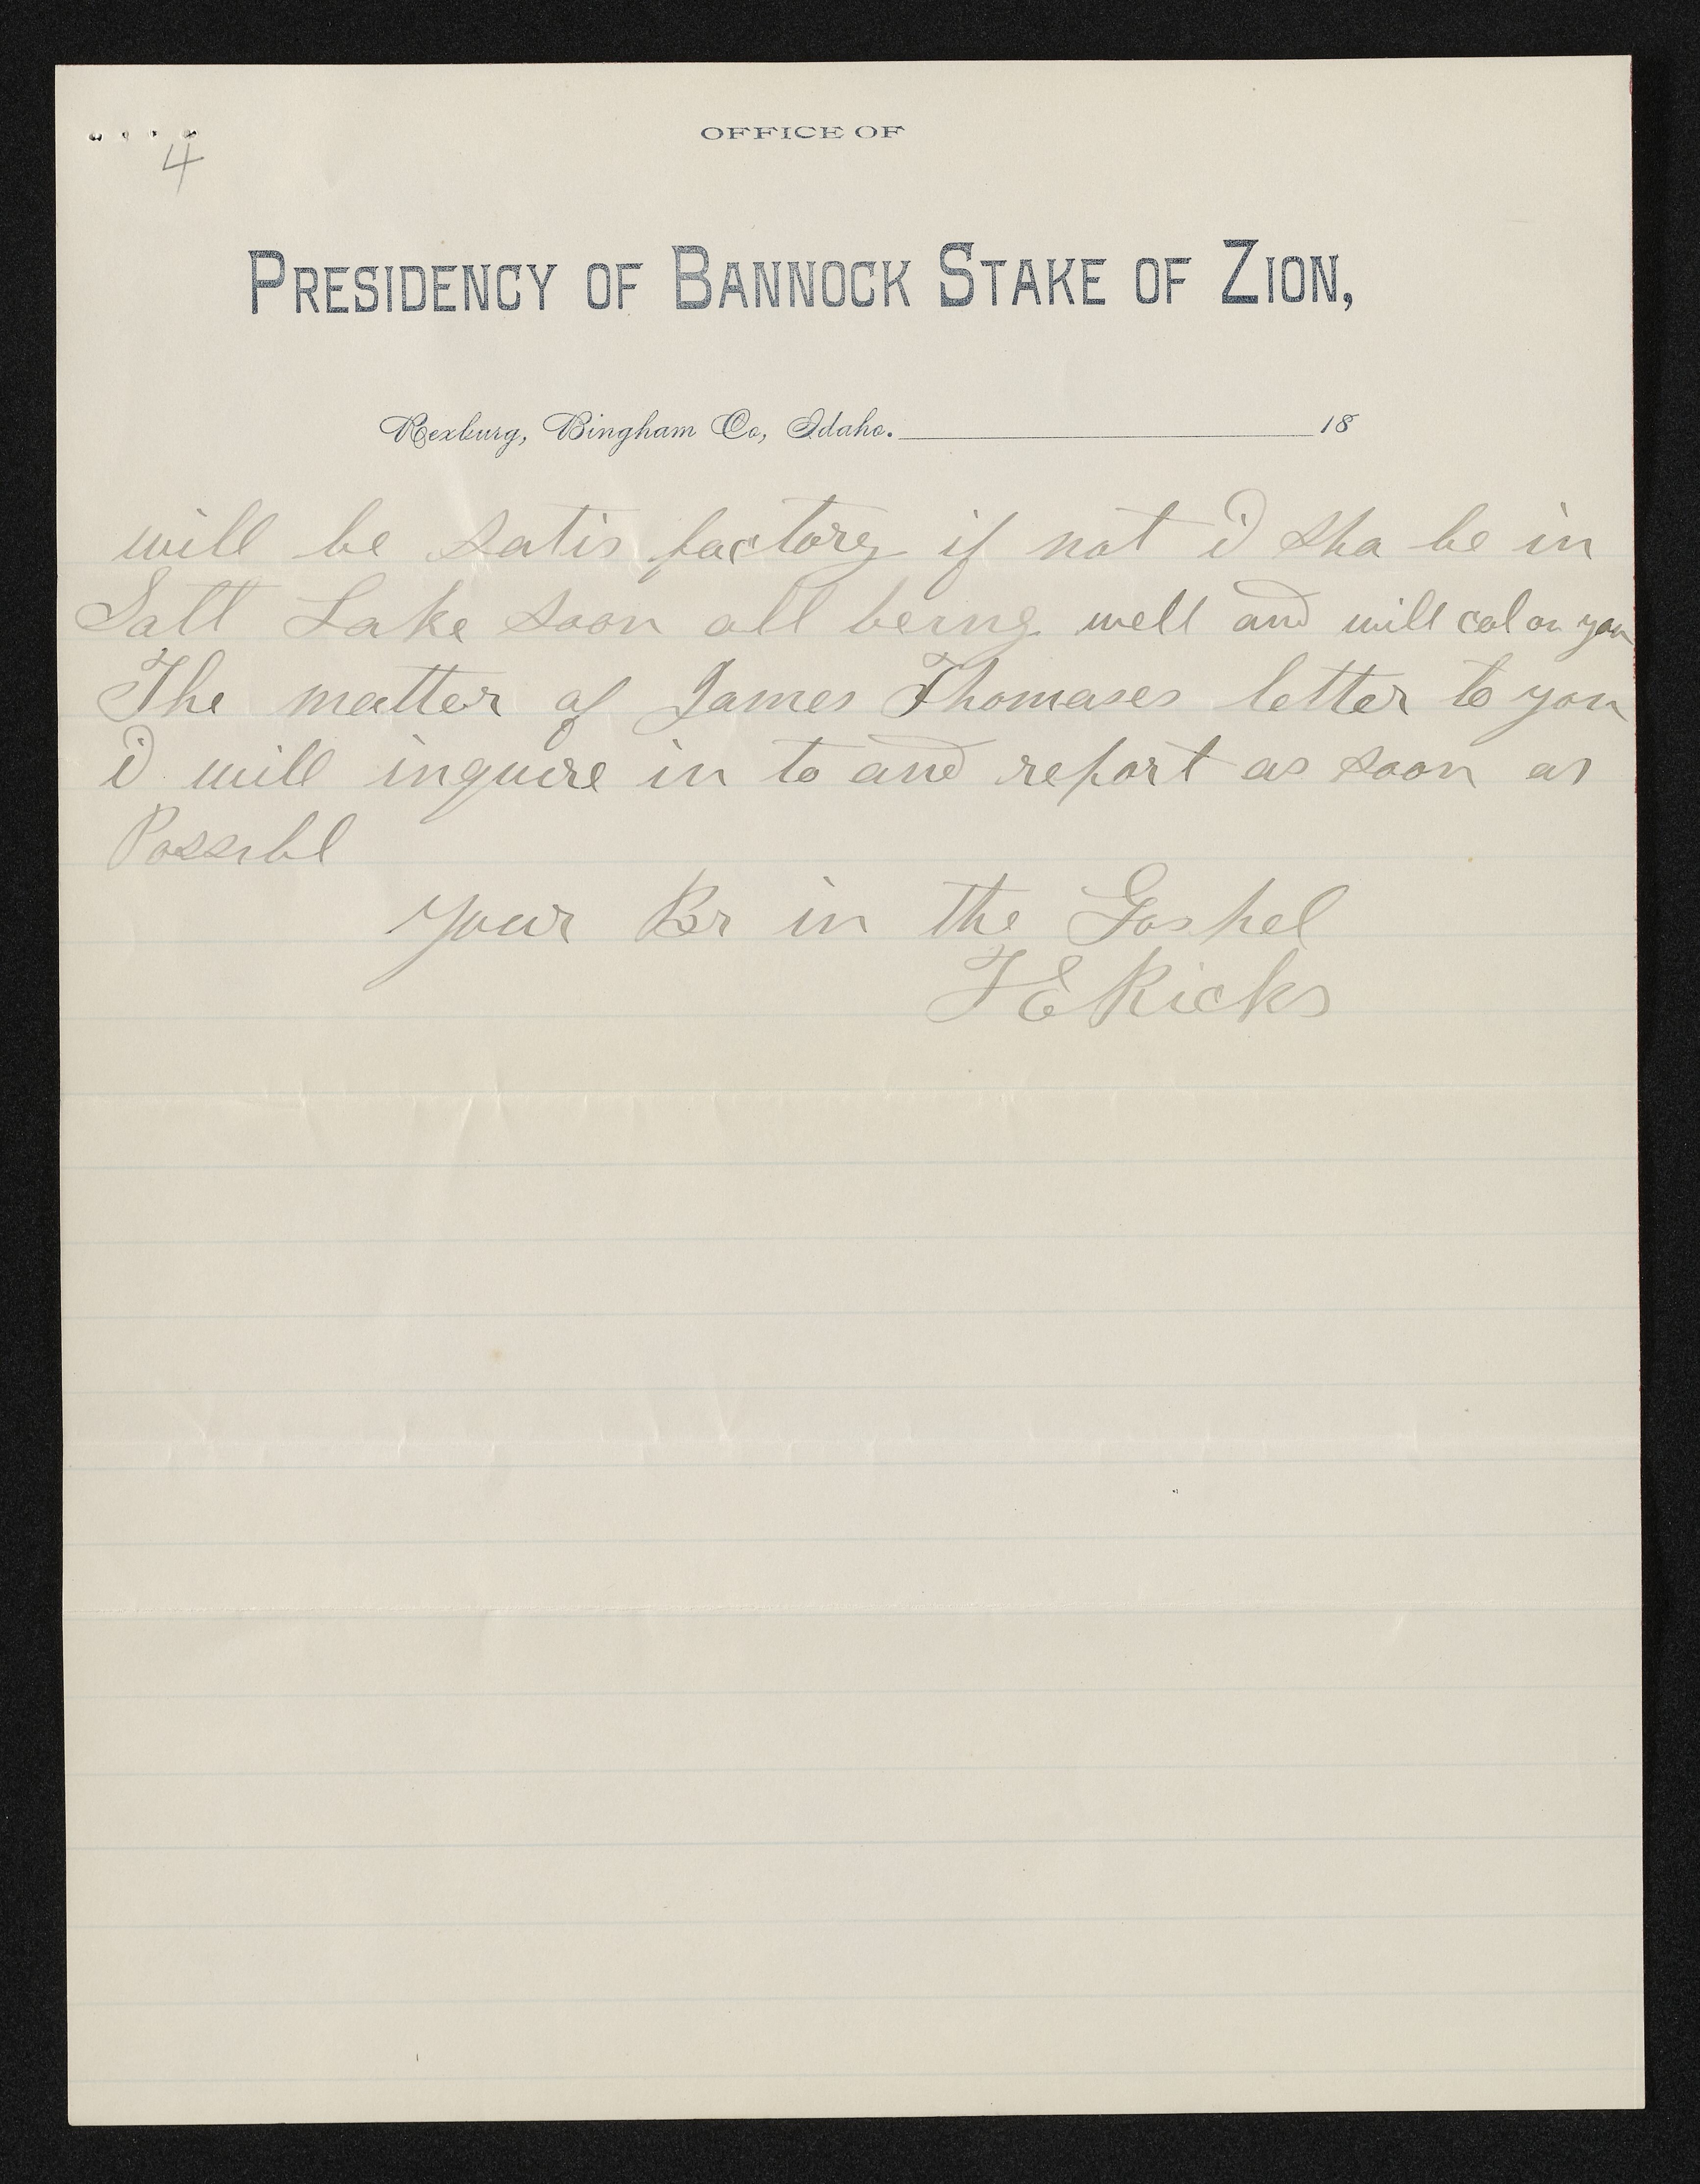 4
OFFICE OF
PRESIDENCY OF BANNOCK STAKE OF ZION,
Rexburg, Bingham Co, Idaho. 18
will be satis factory if not i sha be in
Salt Lake soon all being well and will cal on you
The matter of James Thomases letter to you
i will inquire in to and report as soon as
Possibl
your Br in the Gospel
T E Ricks